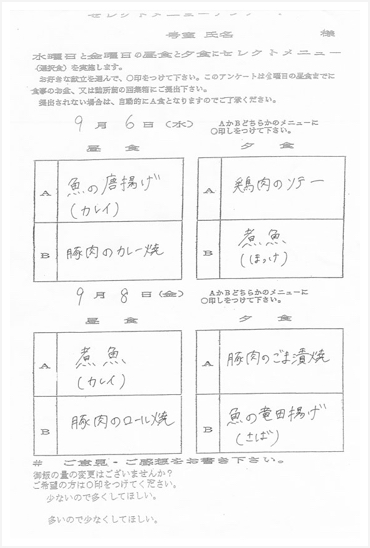 セレクトメニューアンケート
号室 氏名 様
水曜日と金曜日の昼食と夕食にセレクトメニュー
(選択食)を実施します。
お好きな献立を選んで、○印をつけて下さい。このアンケートは月曜日の昼食までに
食事のお盆、又は詰所前の回収箱にご提出下さい。
提出されない場合は、自動的にA食となりますのでご了承ください。
9月6日(水) AかBどちらかのメニューに
○印しをつけて下さい。
昼食 夕食
A 魚の唐揚げ
(カレイ)
A 鶏肉のソテー
B 豚肉のカレー焼
B 煮魚
(ほっけ)
9月8日(金) AかBどちらかのメニューに
○印しをつけて下さい。
昼食 夕食
A 煮魚
(カレイ)
A 豚肉のごま漬焼
B 豚肉のロール焼
B 魚の竜田揚げ
(さば)
# ご意見・ご感想をお書き下さい。
御飯の量の変更はございませんか?
ご希望の方は○印をつけてください。
少ないので多くしてほしい。
多いので少なくしてほしい。